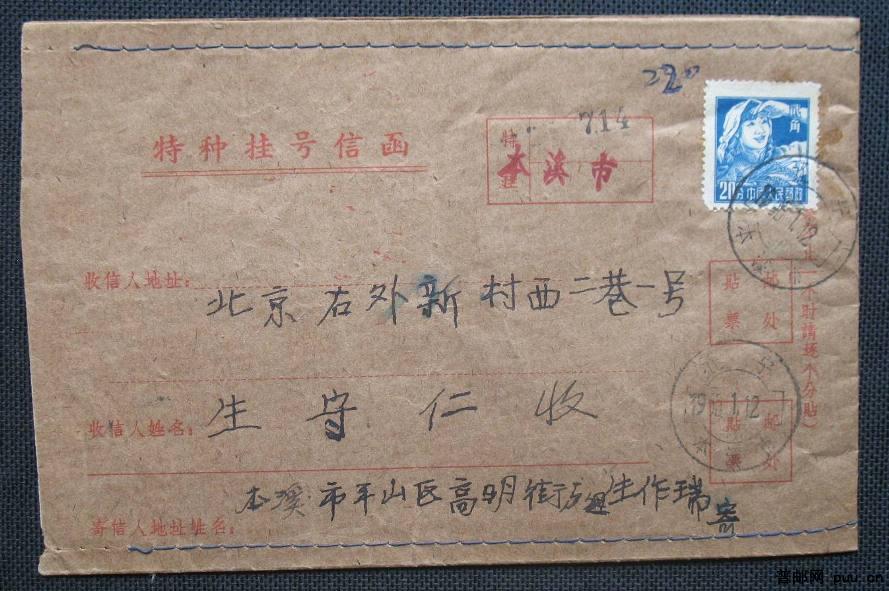 220
贰角
20分中国人民邮政
特种挂号信函
特挂
714
本溪市
收信人地址：
北京右外新村西二巷一号
贴邮
票处
收信人姓名：
生守仁收
1957.1.12
贴邮
票处
本溪市平山区高明街
生作瑞寄
寄信人地址姓名：
普邮网 puu.cn